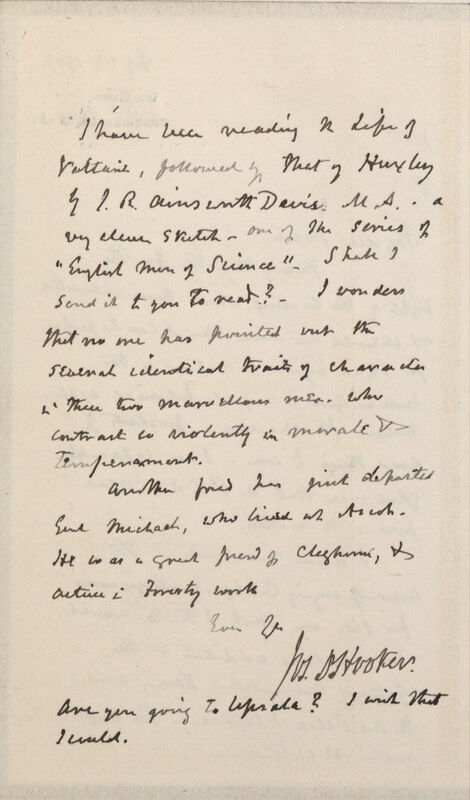 I have been reading the Life of
Voltaire, followed by that of Huxley
by J. R. Ainsworth Davis, M.A. - a
very clever sketch - one of the series of
"English Men of Science" - Shall I
send it to you to read? - I wonder
that no one has pointed out the
several identical traits of character
in these two marvellous men. who
contrast so violently in morale &
Temperament.
Another friend has just departed
Genl Michael, who lived at Ascot.
He was a great friend of Cleghorn, &
active in Forestry work
Ever Yrs
Jos. D Hooker.
Are you going to Upsala? I wish that
I could.